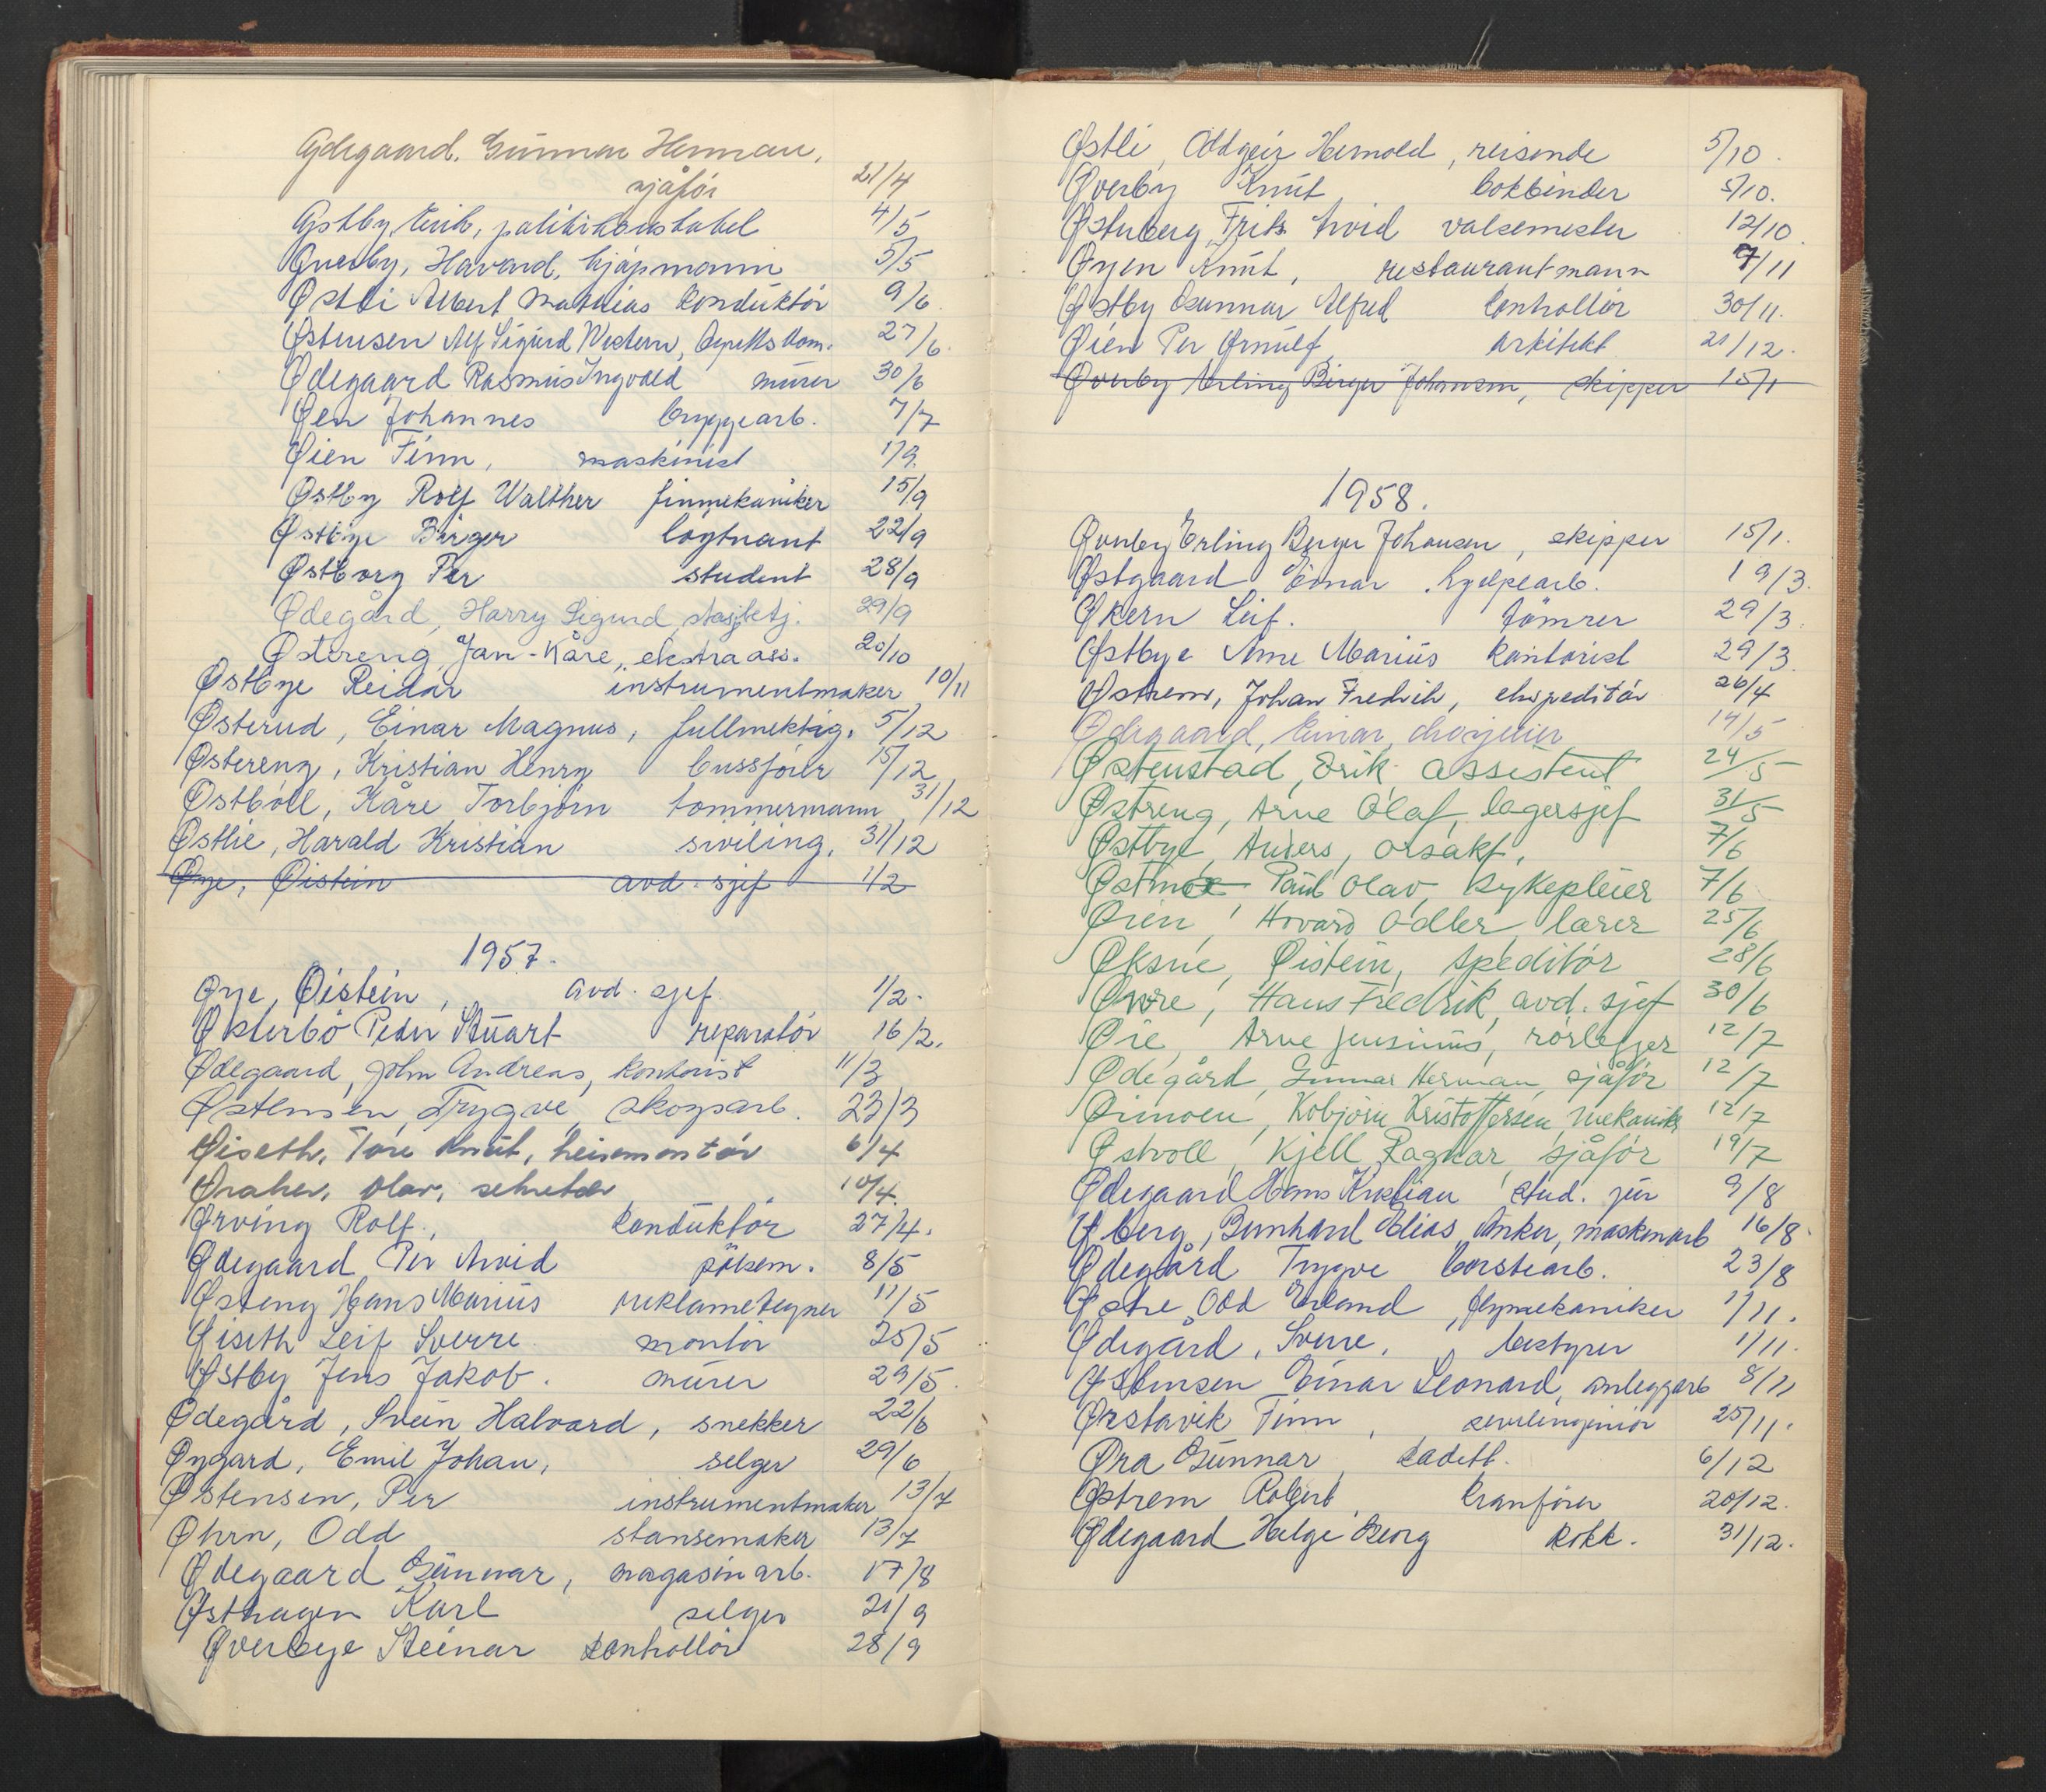 Ødegaard, Gunnar Herman,
sjåför 21/4
Østby, Eirik, politikonstabel 4/5
Øverby, Håvard, kjöpmann 5/5
Østli Albert Mathias konduktör 9/6.
Østensen Alf Sigurd Western, 27/6.
Ødegaard Rasmus Ingvald murer 30/6
Øen Johannes bryggearb. 7/7
Øien Finn, maskinist 1/9.
Østby Rolf Walther finmekaniker 15/9
Østbye Birger löytnant 22/9
Østborg Per student 28/9
Ødegård, Harry Sigurd, 29/9
Østereng, Jan-Kåre, ekstra ass. 20/10
Østbye Reidar instrumentmaker 10/11
Østerud, Einar Magnus, fullmektig. 5/12
Østereng, Kristian Henry bussförer 15/12
Østböll, Kåre Torbjörn tömmermann 31/12
Østlie, Harald Kristian siviling. 31/12
Øye, Øistein avd. sjef 1/2
1957.
Øye, Øistein, avd. sjef 1/2.
Østerbö Peder Stuart reparatör 16/2.
Ødegaard, John Andreas, kontorist 11/3
Østensen, Trygve, skogsarb. 23/3
Øiseth, Tore Knut, heismontör 6/4
Øraker, Olav, sekretær 10/4.
Ørving Rolf, konduktör 27/4.
Ødegaard Per Arvid pölsem. 8/5
Østeng Hans Marius reklametegner 11/5
Øiseth Leif Sverre montör 25/5
Østby Jens Jakob. murer 29/5.
Ødegård, Svein Halvard, snekker 22/6
Øygard, Emil Johan, selger 29/6
Østensen, Per instrumentmaker 13/7
Øhrn, Odd stansemaker 13/7
Ødegaard Gunnar, magasinarb. 17/8
Østhagen Karl selger 21/9
Øverbye Steinar kontrollör 28/9
Østli, Oddgeir Hermold, reisende 5/10.
Øverby Knut bokbinder 5/10.
Østerberg, Frits Arvid valsemester 12/10.
Øyen Knut, restaurantmann 7/11
Østby Gunnar Alfred kontrollör 30/11.
Øien Per Ørnulf, arkitekt 21/12.
Øverby Erling Birger Johansen, skipper 15/1
1958.
Øverby Erling Birger Johansen, skipper 15/1.
Østgaard Einar hjelpearb. 19/3.
Økern Leif. tömrer 29/3.
Østbye Arne Marius kontorist 29/3.
Østrem, Johan Fredrik, ekspeditör 26/4
Ødegaard, Einar, 14/5
Østenstad, Erik assistent 24/5
Østreng, Arne Olaf, lagersjef 31/5
Østbye, Anders, orsakf. 7/6
Østmoe Paul Olav, sykepleier 7/6
Øien, Hovard Odler, lærer 25/6
Øksne, Øistein, speditör 28/6
Øvre, Hans Fredrik, avd. sjef 30/6
Øie, Arne Jensinius, rörlegger 12/7
Ødegård, Gunnar Herman, sjåför 12/7
Øimoen, Kobjörn Kristoffersen, mekaniker 12/7
Østvoll, Kjell Ragnar, sjåför 19/7
Ødegaard Hans Kristian stud. jur 9/8
Øberg, Bernhard Elias Anker, maskinarb 16/8.
Ødegård Trygve börstearb. 23/8
Østre Odd Erland, flymekaniker 1/11.
Ødegård, Sverre, bestyrer 1/11.
Einar Leonard, anleggarb 8/11
Ørstavik Finn, sivilingeniör 25/11.
Øra Gunnar, kadett. 6/12
Østrem Robert, kranförer 20/12.
Ødegaard Helge Georg kokk. 31/12.